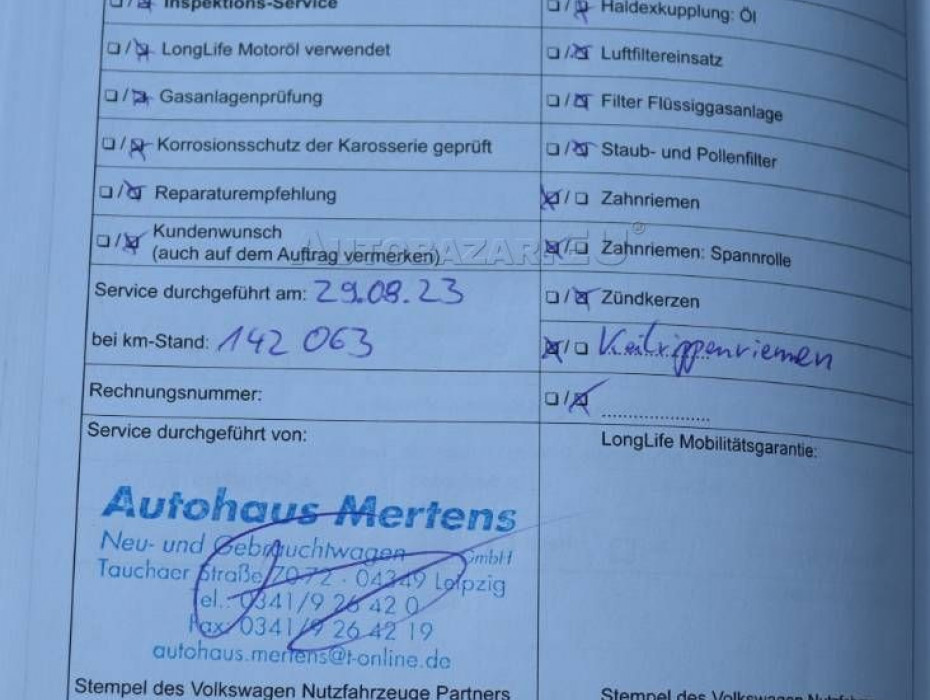 Inspektions-Service
LongLife Motoröl verwendet
Gasanlagenprüfung
Korrosionsschutz der Karosserie geprüft
Reparaturempfehlung
Kundenwunsch
(auch auf dem Auftrag vermerken)
Service durchgeführt am: 29.08.23
bei km-Stand: 142 063
Rechnungsnummer:
Service durchgeführt von:
Autohaus Mertens
Neu- und Gebrauchtwagen GmbH
Tauchaer Straße 70-72 · 04349 Leipzig
Tel.: 0341/9 26 42 0
Fax: 0341/9 26 42 19
autohaus.mertens@t-online.de
Stempel des Volkswagen Nutzfahrzeuge Partners
Haldexkupplung: Öl
Luftfiltereinsatz
Filter Flüssiggasanlage
Staub- und Pollenfilter
Zahnriemen
Zahnriemen: Spannrolle
Zündkerzen
Keilrippenriemen
LongLife Mobilitätsgarantie:
Stempel des Volkswagen Nutzfahrzeuge
AUTOBAZAR.EU